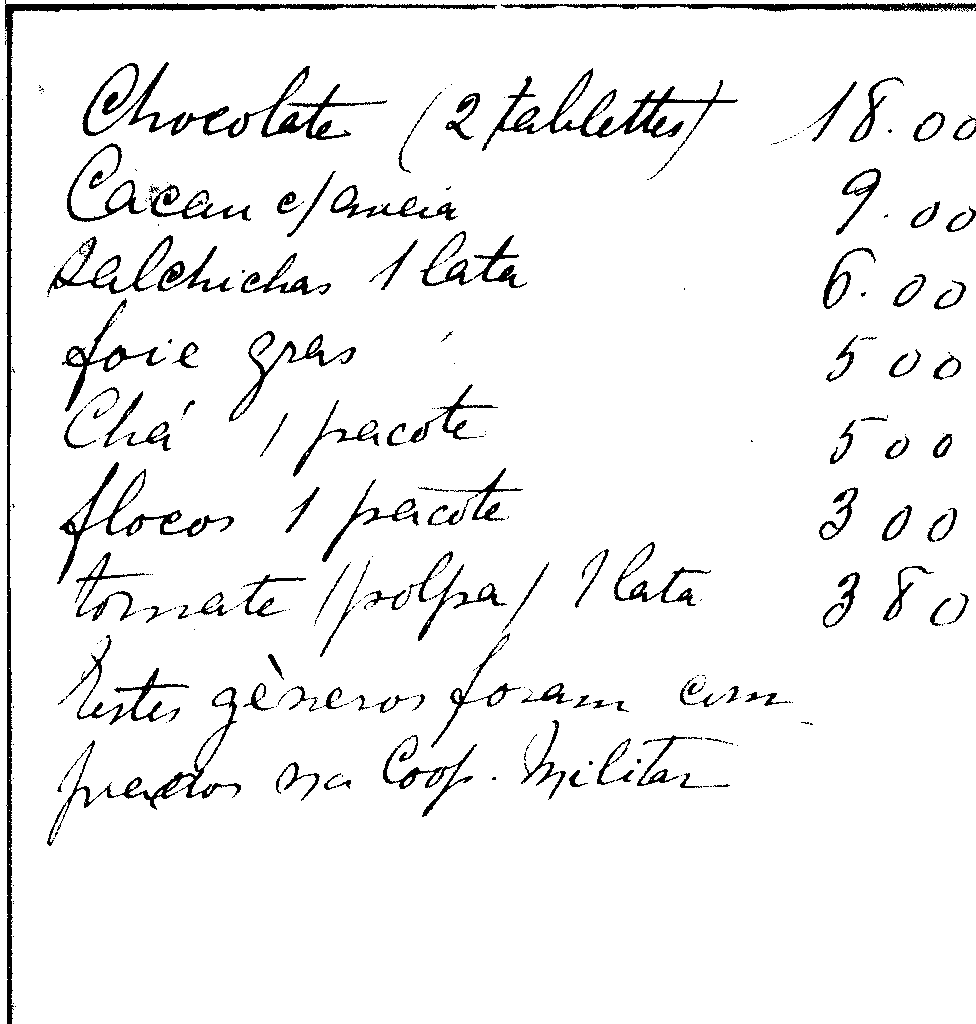 Chocolate (2 tablettes) 18.00
Cacau c/ aveia 9.00
Salchichas 1 lata 6.00
foie gras 5 00
Chá 1 pacote 5 00
flocos 1 pacote 3 00
tomate /polpa/ 1 lata 3 80
Estes gèneros foram com-
prados na Coop. Militar